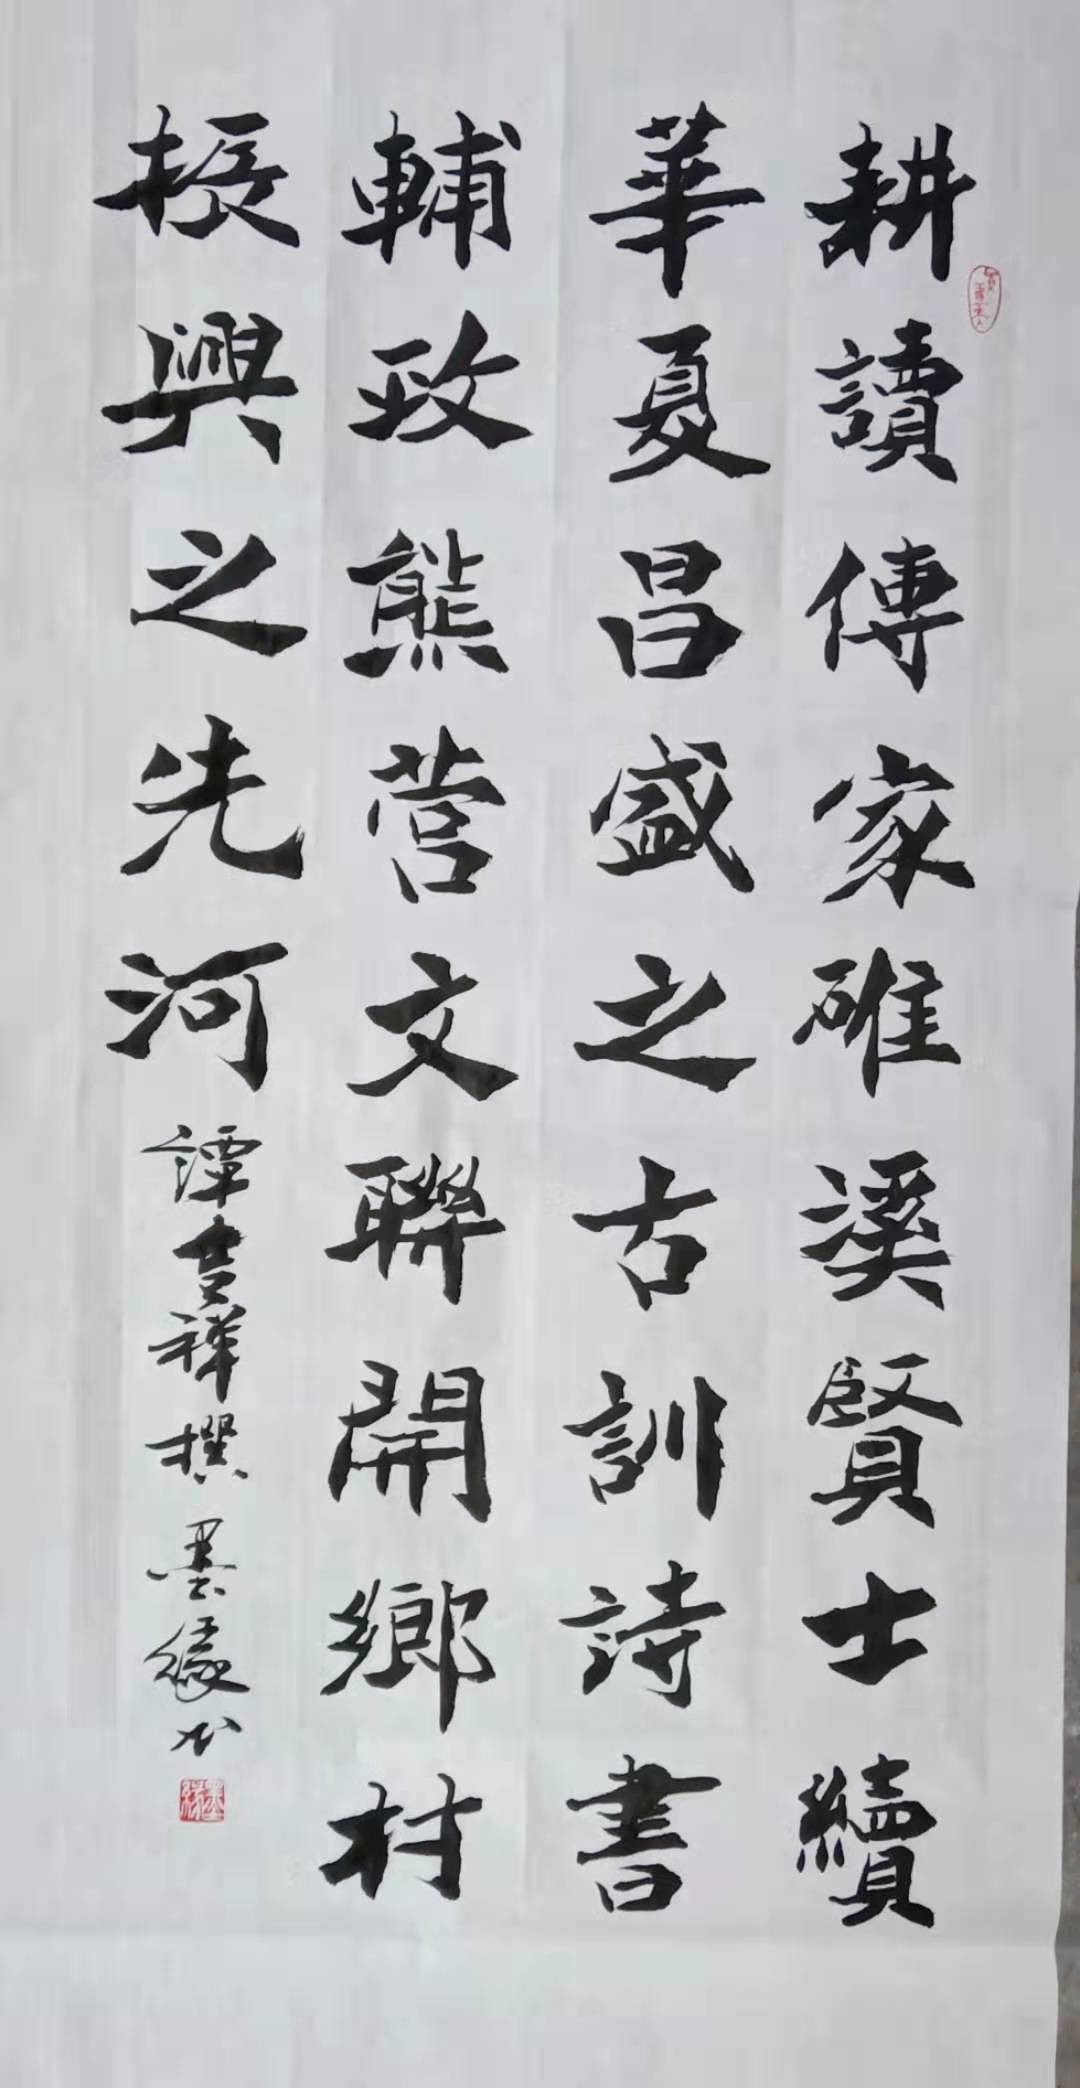 耕讀傳家碓溪賢士續
華夏昌盛之古訓詩書
輔政熊营文聯開鄉村
振興之先河
譚吉祥撰墨緣书
墨緣